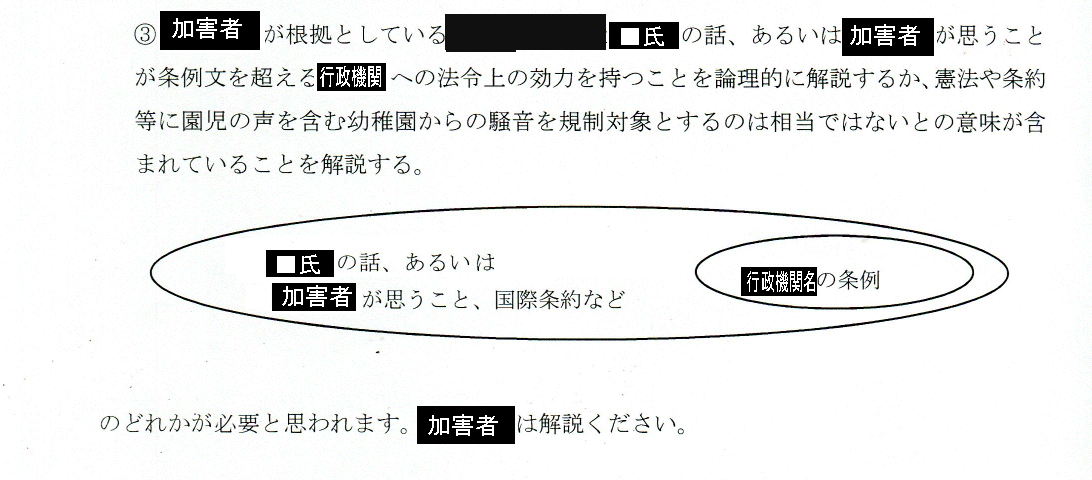 ③加害者が根拠としている■氏の話、あるいは加害者が思うこと
が条例文を超える行政機関への法令上の効力を持つことを論理的に解説するか、憲法や条約
等に園児の声を含む幼稚園からの騒音を規制対象とするのは相当ではないとの意味が含
まれていることを解説する。
■氏の話、あるいは
加害者が思うこと、国際条約など
行政機関名の条例
のどれかが必要と思われます。加害者は解説ください。